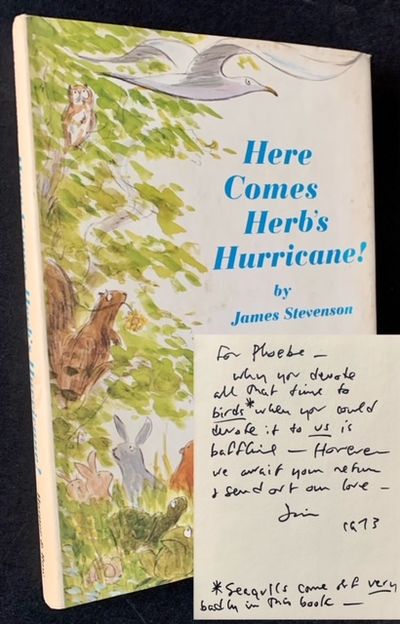 Here
Comes
Herb's
Hurricane!
by
James Stevenson
For Phoebe —
why you devote
all that time to
birds* when you could
devote it to us is
baffling — However
we await your return
& send out our love —
Jim
1973
*Seagulls come off very
badly in this book —